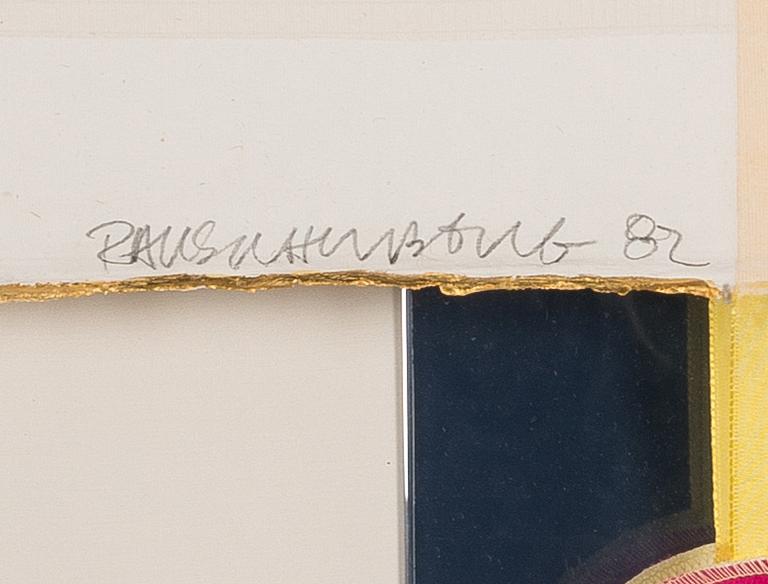 RAUSCHENBERG 82